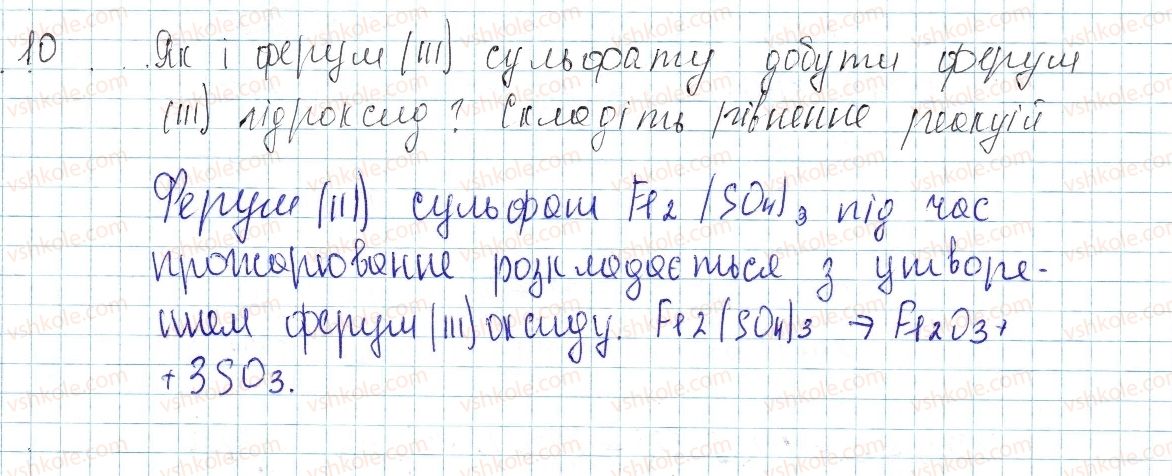 10 Як і ферум (III) сульфату добути ферум
(III) гідроксид? Складіть рівнення реакцій
Ферум (III) сульфат Fe2(SO4)3 під час
прожарювання розкладається з утворе-
нням ферум (III) оксиду. Fe2(SO4)3 → Fe2O3 +
+ 3SO3.